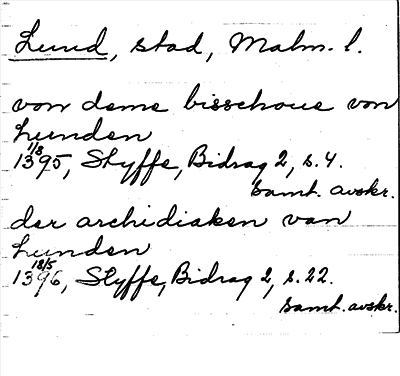 Lund, stad, Malm. l.
von deme bisschoue von
Lunden
1/8
1395, Styffe, Bidrag 2, s. 4.
samt. avskr.
der archidiaken van
Lunden
18/5
1396, Styffe, Bidrag 2, s. 22.
samt. avskr.